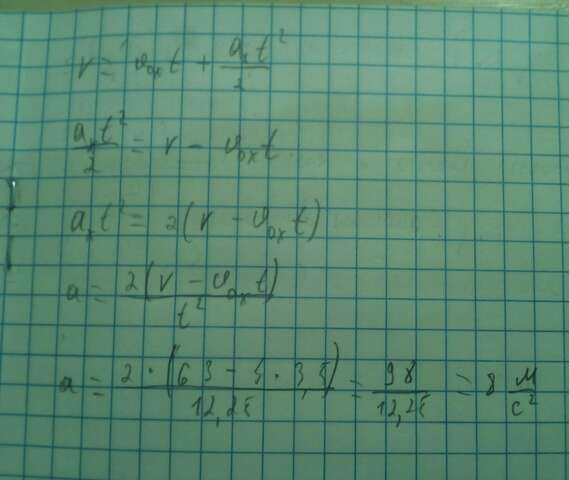 r = v₀ₓt + aₓt²/2
aₓt²/2 = r - v₀ₓt
aₓt² = 2(r - v₀ₓt)
a = 2(r - v₀ₓt)/t²
a = 2·(63 - 4·3,5)/12,25 = 98/12,25 = 8 м/с²